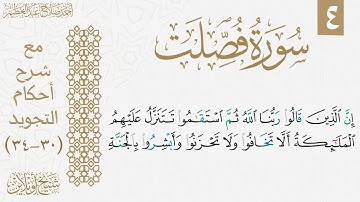 ٤
سُورَةُ فُصِّلَتْ
إِنَّ ٱلَّذِينَ قَالُوا۟ رَبُّنَا ٱللَّهُ ثُمَّ ٱسْتَقَٰمُوا۟ تَتَنَزَّلُ عَلَيْهِمُ
ٱلْمَلَٰٓئِكَةُ أَلَّا تَخَافُوا۟ وَلَا تَحْزَنُوا۟ وَأَبْشِرُوا۟ بِٱلْجَنَّةِ
مع
شرح
أحكام
التجويد
(٣٠-٣٤)